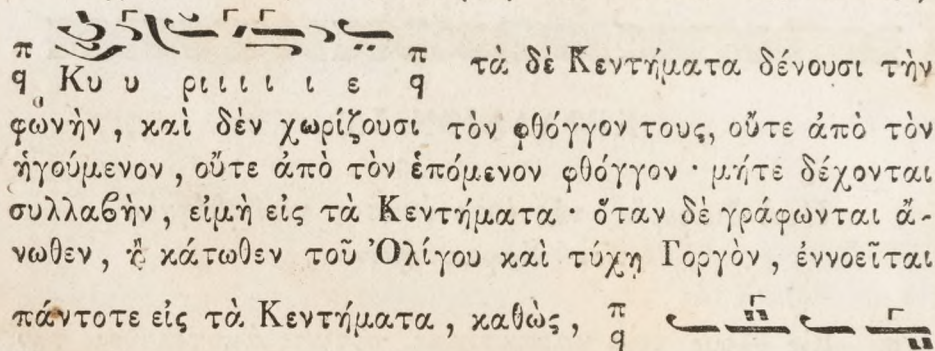 π
q Κυ υ ρι ι ι ι ι ε π
q τὰ δὲ Κεντήματα δένουσι τὴν
φωνὴν, καὶ δὲν χωρίζουσι τὸν φθόγγον τους, οὔτε ἀπὸ τὸν
ἡγούμενον, οὔτε ἀπὸ τὸν ἑπόμενον φθόγγον · μήτε δέχονται
συλλαβὴν, εἰμὴ εἰς τὰ Κεντήματα · ὅταν δὲ γράφωνται ἄ-
νωθεν, ἢ κάτωθεν τοῦ Ὀλίγου καὶ τύχῃ Γοργὸν, ἐννοεῖται
πάντοτε εἰς τὰ Κεντήματα, καθὼς, π
q